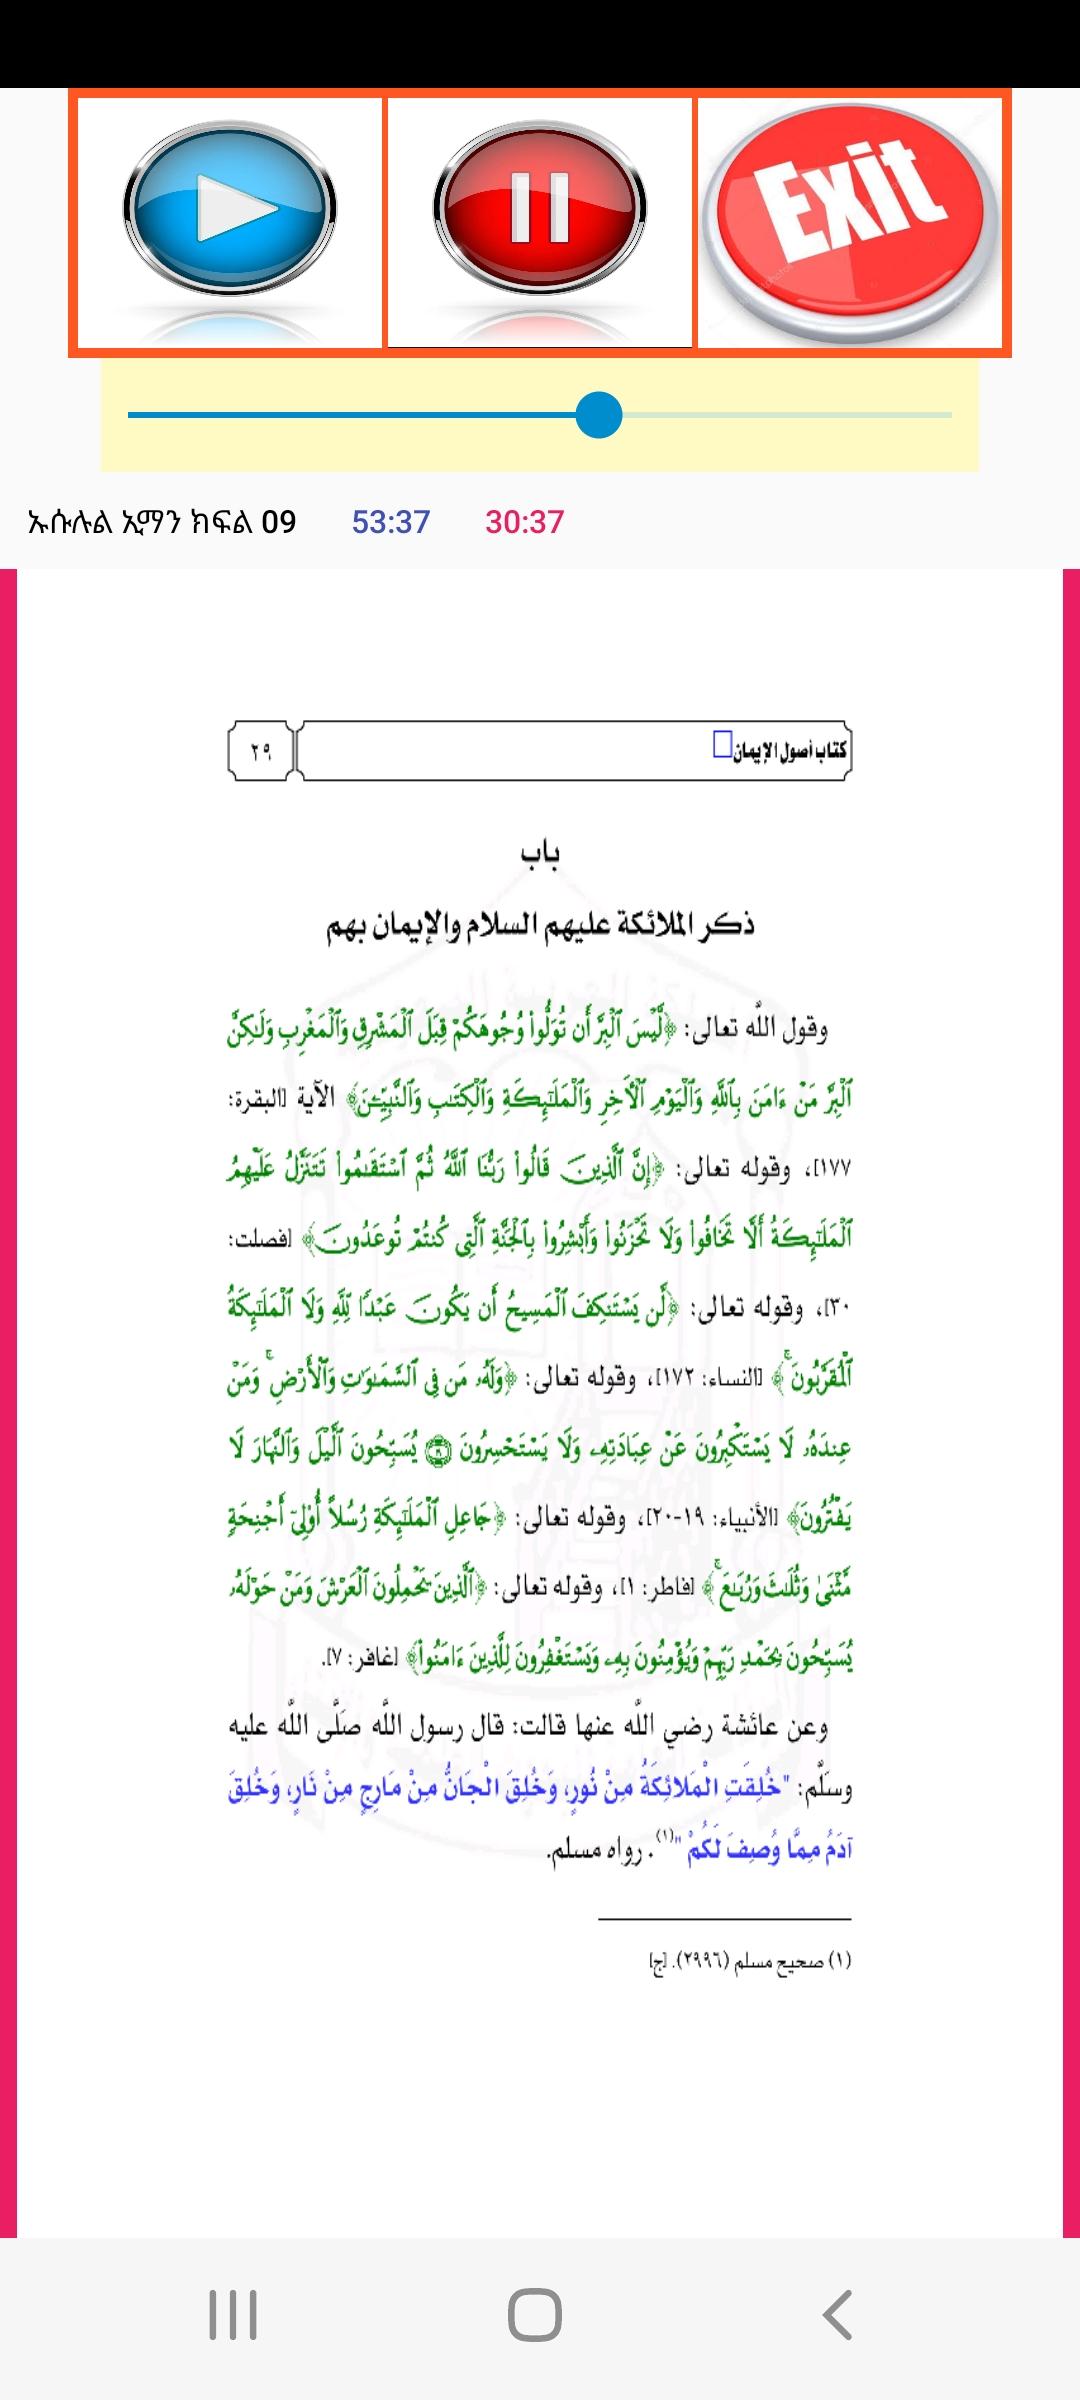 Exit
ኡሱሉል ኢማን ክፍል 09 53:37 30:37
كتاب أصول الإيمان ٢٩
باب
ذكر الملائكة عليهم السلام والإيمان بهم
وقول الله تعالى: ﴿لَّيْسَ ٱلْبِرَّ أَن تُوَلُّوا۟ وُجُوهَكُمْ قِبَلَ ٱلْمَشْرِقِ وَٱلْمَغْرِبِ وَلَـٰكِنَّ
ٱلْبِرَّ مَنْ ءَامَنَ بِٱللَّهِ وَٱلْيَوْمِ ٱلْـَٔاخِرِ وَٱلْمَلَـٰٓئِكَةِ وَٱلْكِتَـٰبِ وَٱلنَّبِيِّـۧنَ﴾ الآية [البقرة:
١٧٧]، وقوله تعالى: ﴿إِنَّ ٱلَّذِينَ قَالُوا۟ رَبُّنَا ٱللَّهُ ثُمَّ ٱسْتَقَـٰمُوا۟ تَتَنَزَّلُ عَلَيْهِمُ
ٱلْمَلَـٰٓئِكَةُ أَلَّا تَخَافُوا۟ وَلَا تَحْزَنُوا۟ وَأَبْشِرُوا۟ بِٱلْجَنَّةِ ٱلَّتِى كُنتُمْ تُوعَدُونَ﴾ [فصلت:
٣٠]، وقوله تعالى: ﴿لَّن يَسْتَنكِفَ ٱلْمَسِيحُ أَن يَكُونَ عَبْدًا لِّلَّهِ وَلَا ٱلْمَلَـٰٓئِكَةُ
ٱلْمُقَرَّبُونَ ۚ﴾ [النساء: ١٧٢]، وقوله تعالى: ﴿وَلَهُۥ مَن فِى ٱلسَّمَـٰوَٰتِ وَٱلْأَرْضِ ۚ وَمَنْ
عِندَهُۥ لَا يَسْتَكْبِرُونَ عَنْ عِبَادَتِهِۦ وَلَا يَسْتَحْسِرُونَ ۝ يُسَبِّحُونَ ٱلَّيْلَ وَٱلنَّهَارَ لَا
يَفْتُرُونَ﴾ [الأنبياء: ١٩-٢٠]، وقوله تعالى: ﴿جَاعِلِ ٱلْمَلَـٰٓئِكَةِ رُسُلًا أُو۟لِىٓ أَجْنِحَةٍ
مَّثْنَىٰ وَثُلَـٰثَ وَرُبَـٰعَ ۚ﴾ [فاطر: ١]، وقوله تعالى: ﴿ٱلَّذِينَ يَحْمِلُونَ ٱلْعَرْشَ وَمَنْ حَوْلَهُۥ
يُسَبِّحُونَ بِحَمْدِ رَبِّهِمْ وَيُؤْمِنُونَ بِهِۦ وَيَسْتَغْفِرُونَ لِلَّذِينَ ءَامَنُوا۟﴾ [غافر: ٧].
وعن عائشة رضي الله عنها قالت: قال رسول الله صلَّى الله عليه
وسلَّم: "خُلِقَتِ الْمَلائِكَةُ مِنْ نُورٍ، وَخُلِقَ الْجَانُّ مِنْ مَارِجٍ مِنْ نَارٍ، وَخُلِقَ
آدَمُ مِمَّا وُصِفَ لَكُمْ"(١). رواه مسلم.
(١) صحيح مسلم (٢٩٩٦). [ج]